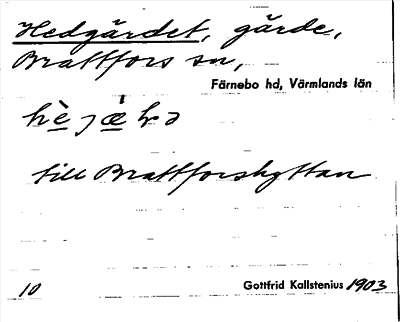 Hedgärdet, gärde,
Brattfors sn,
Färnebo hd, Värmlands län
till Brattforshyttan
10 Gottfrid Kallstenius 1903